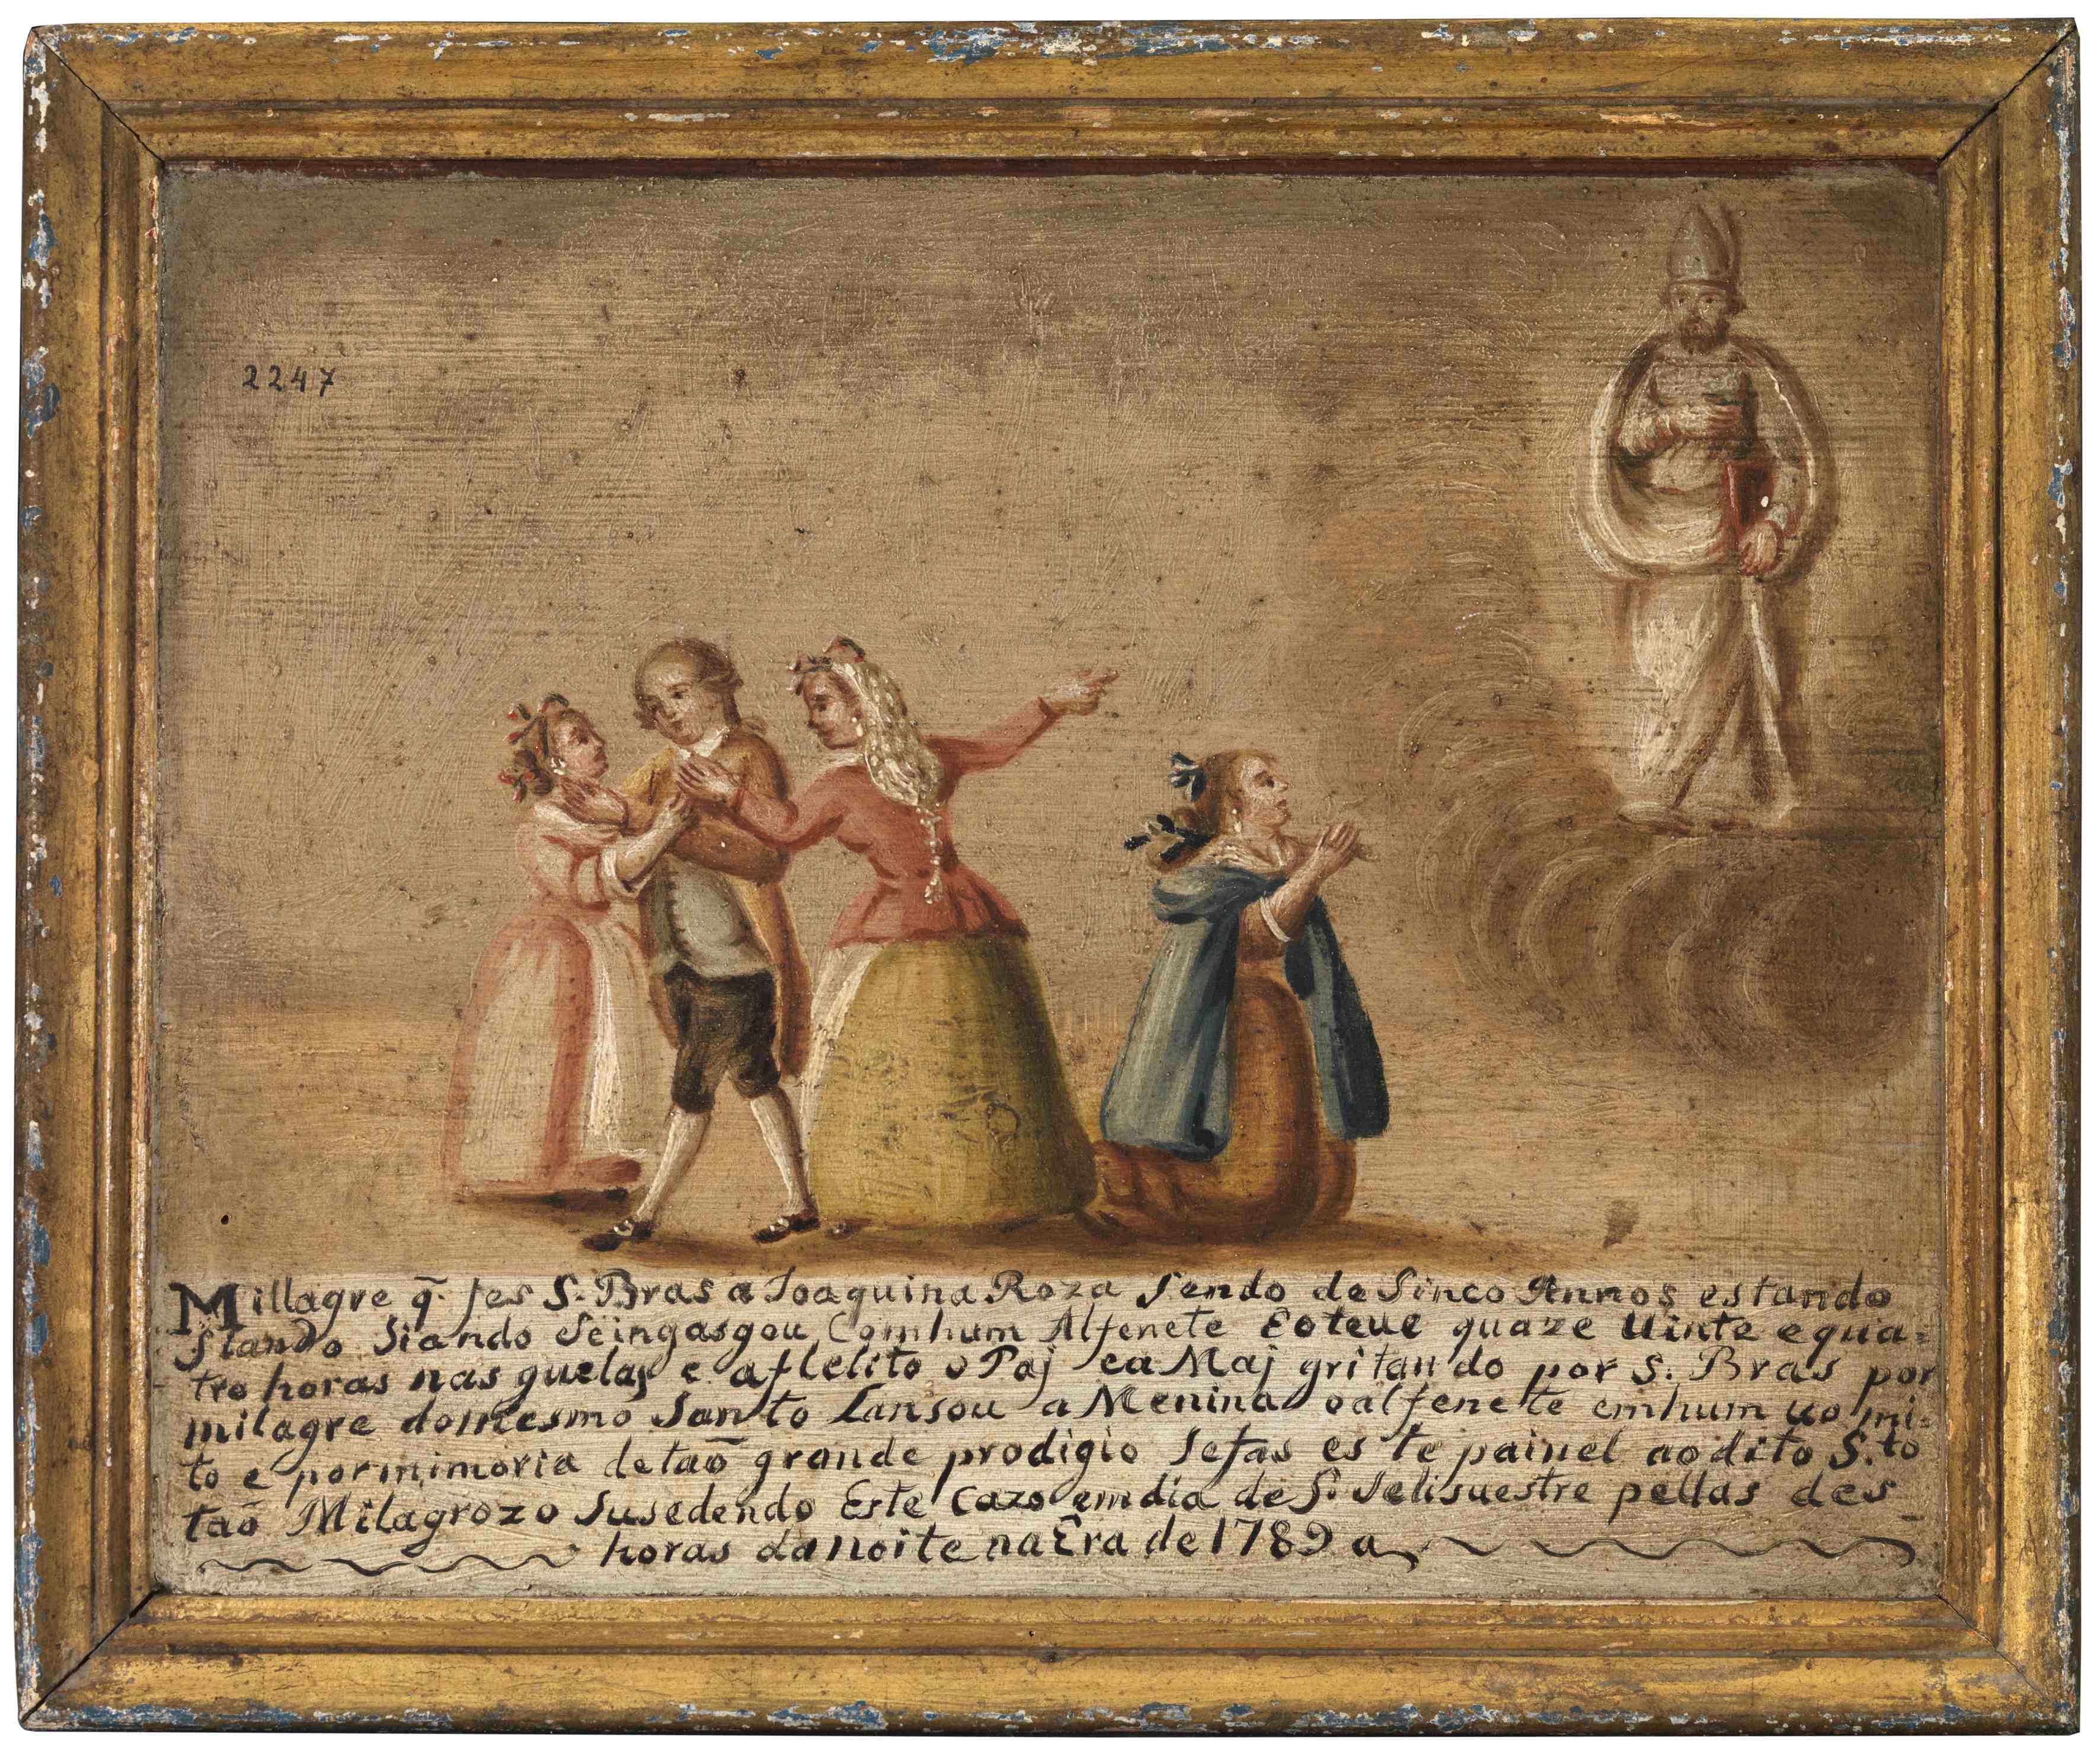 2247
Millagre q̃. fes S. Bras a Joaquina Roza Sendo de Sinco Annos estando
Stando Siando Seingasgou Comhum Alfenete Eoteue quaze Uinte e qua=
tro horas nas guelas e aflelito o Paj ea Maj gritando por S. Bras por
milagre domesmo Santo Lansou a Menina oalfenete emhum uo mi=
to e pormimoria detaõ grande prodigio Sefas este painel aodito S.to
taõ Milagrozo Susedendo Este Cazo emdia de S. Selisuestre pellas des
horas danoite na Era de 1789 a